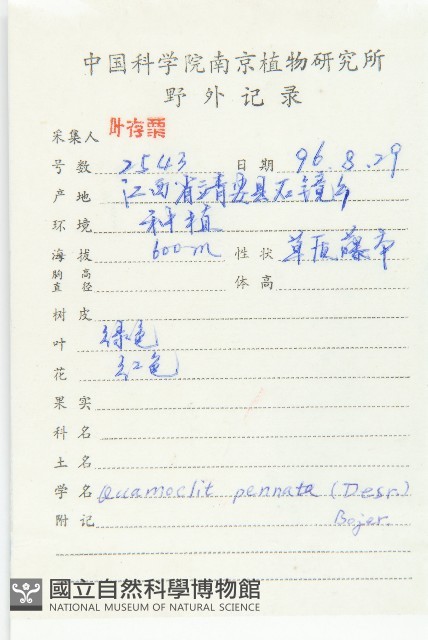 中国科学院南京植物研究所
野外记录
采集人 叶存粟
号数 2543 日期 96.8.29
产地 江西省靖安县石镜乡
环境 种植
海拔 600m 性状 草质藤本
胸高直径 体高
树皮
叶 绿色
花 红色
果实
科名
土名
学名 Quamoclit pennata (Desr.)
附记 Bojer.
國立自然科學博物館
NATIONAL MUSEUM OF NATURAL SCIENCE